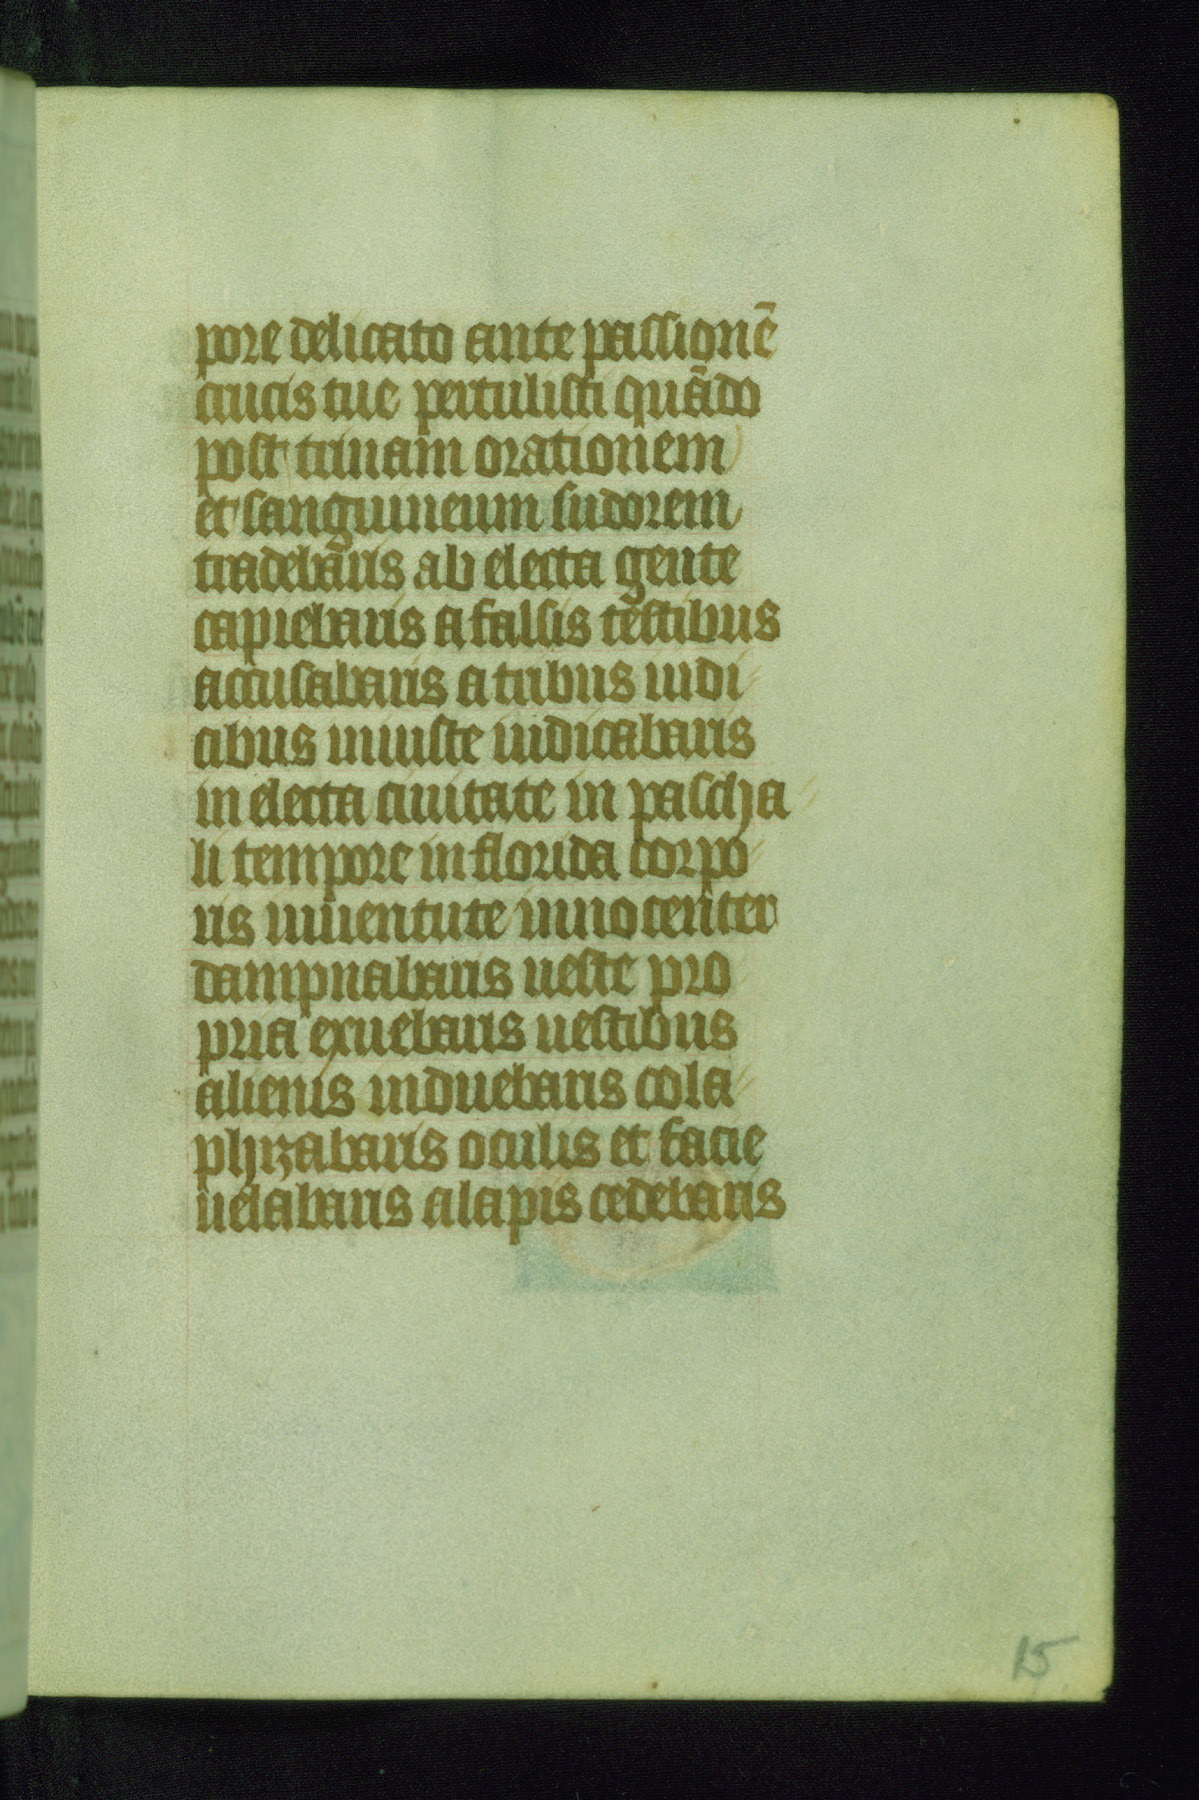 pore delicato ante passionē
crucis tue pertulisti quādo
post trinam orationem
et sanguineum sudorem
tradebaris ab electa gente
capiebaris a falsis testibus
accusabaris a tribus iudi
cibus iniuste iudicabaris
in electa ciuitate in pascha
li tempore in florida corpo
ris iuuentute innocenter
dampnabaris ueste pro
pria exuebaris uestibus
alienis induebaris cola
phizabaris oculis et facie
uelabaris alapis cedebaris
15